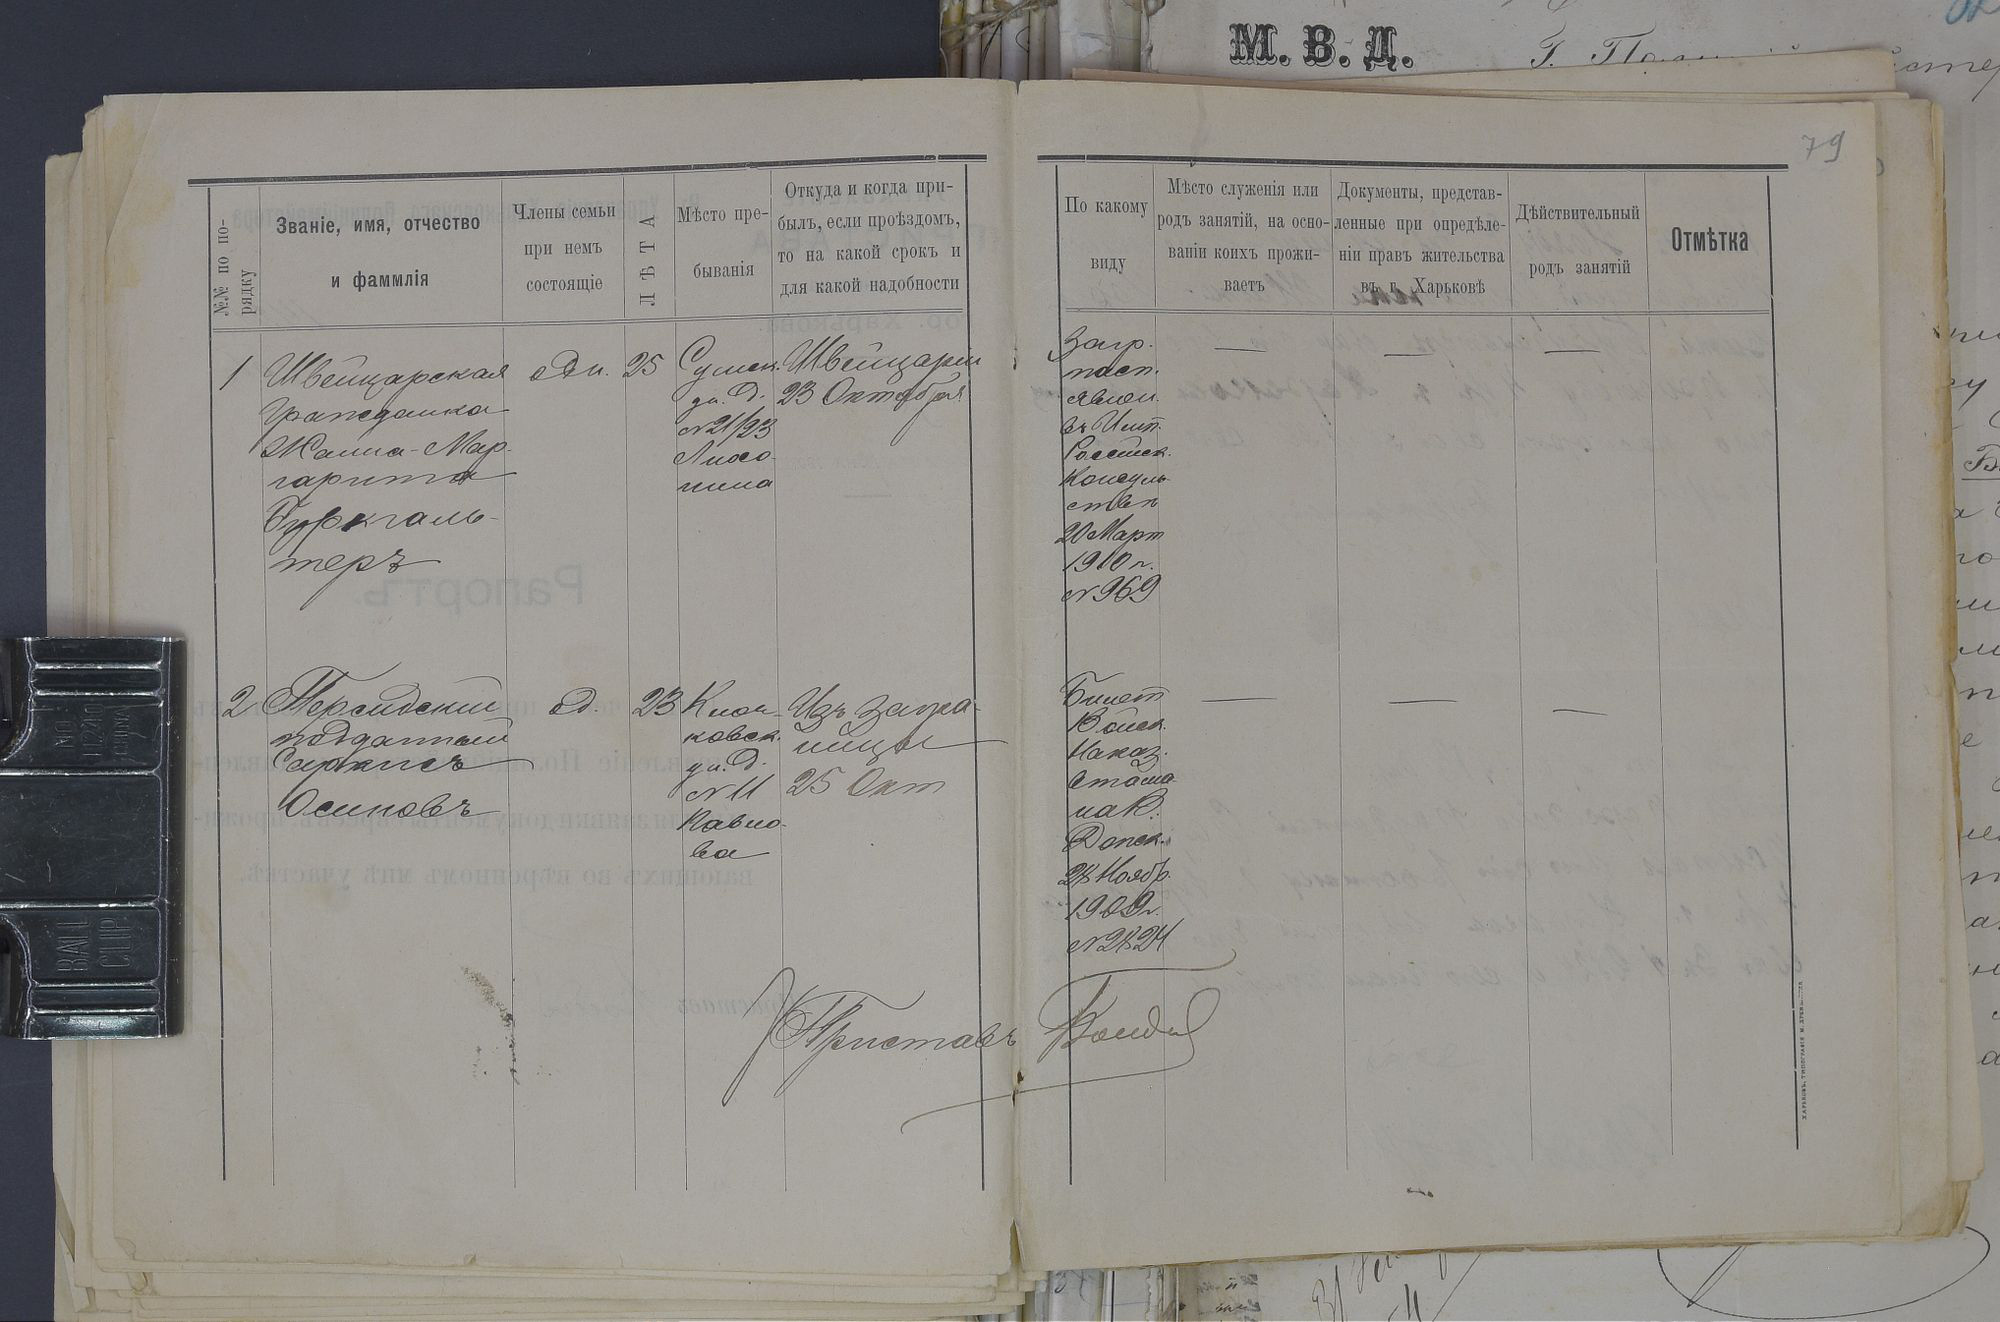 М. В. Д.
79
№№ по по-
рядку
Званіе, имя, отчество
и фаммлія
Члены семьи
при немъ
состоящіе
ЛѢТА
Мѣсто пре-
быванія
Откуда и когда при-
былъ, если проѣздомъ,
то на какой срокъ и
для какой надобности
По какому
виду
Мѣсто служенія или
родъ занятій, на осно-
ваніи коихъ прожи-
ваетъ
Документы, представ-
ленные при опредѣле-
ніи правъ жительства
въ г. Харьковѣ
Дѣйствительный
родъ занятій
Отмѣтка
1
Швейцарская
гражданка
Жанна-Мар-
гарита
Буркгаль-
теръ
одн.
25
Сумск.
ул. д.
№ 21/23
Швейцаріи
23 Октября
—
Загр.
пасп.
явлен.
въ Имп.
Россійск.
Консуль-
ствѣ
20 Март
1910 г.
№ 969
—
—
—
2
Персидский
подданный
Саркисъ
Осиповъ
од.
23
Клоч-
ковск.
ул. д.
№ 11
Изъ загра-
ницы
25 Окт
Билет
Войск.
Наказ.
Атама
на В.
Донск.
28 Ноябр.
1909 г.
№ 2824
—
—
—
Приставъ
ХАРЬКОВЪ, ТИПОГРАФІЯ
NO 1
11210
CHINA
BALL
CLIP